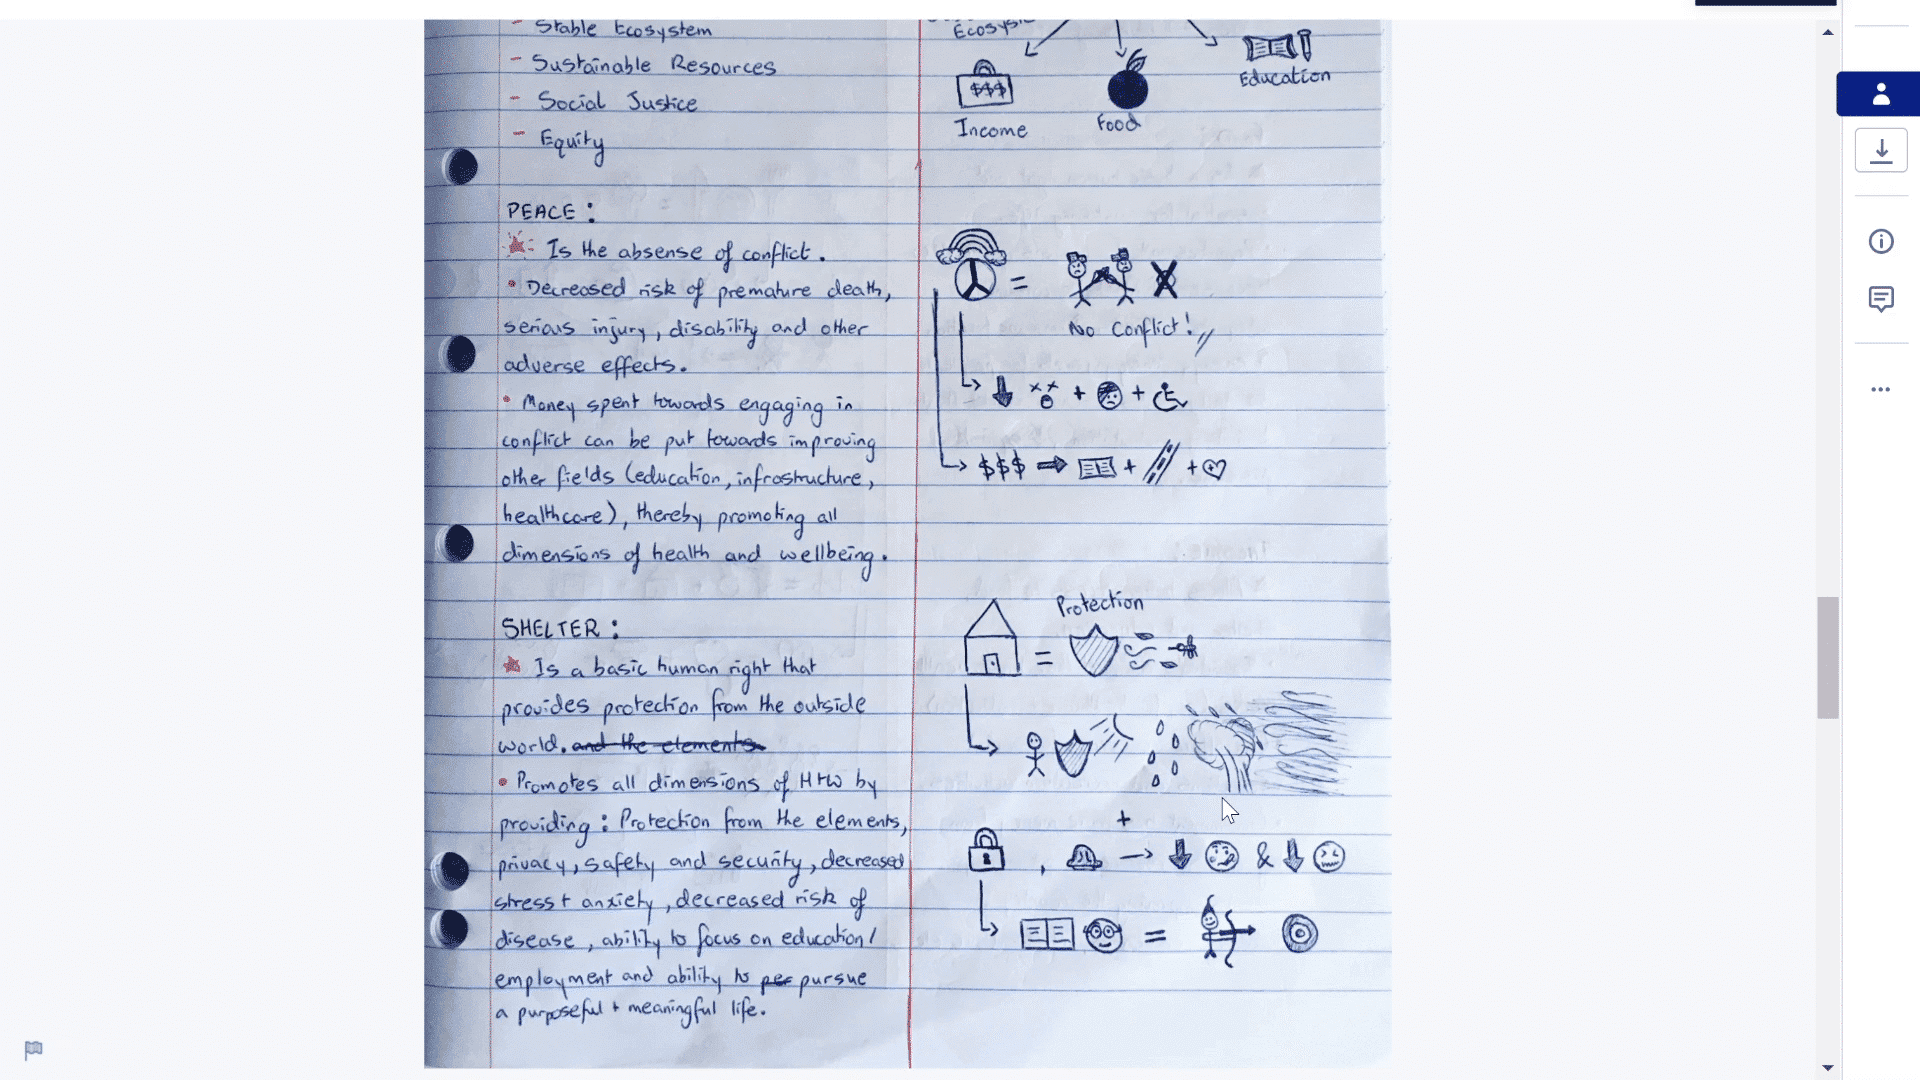 - Stable Ecosystem
- Sustainable Resources
- Social Justice
- Equity
Education
$$$
Income
Food
PEACE :
Is the absense of conflict.
• Decreased risk of premature death,
serious injury, disability and other
adverse effects.
• Money spent towards engaging in
conflict can be put towards improving
other fields (education, infrastructure,
healthcare), thereby promoting all
dimensions of health and wellbeing.
=
No Conflict!
+ +
$$$ + +
SHELTER :
Is a basic human right that
provides protection from the outside
world. and the elements
• Promotes all dimensions of H+W by
providing : Protection from the elements,
privacy, safety and security, decreased
stress + anxiety, decreased risk of
disease, ability to focus on education/
employment and ability to per pursue
a purposeful + meaningful life.
Protection
=
+
, &
=